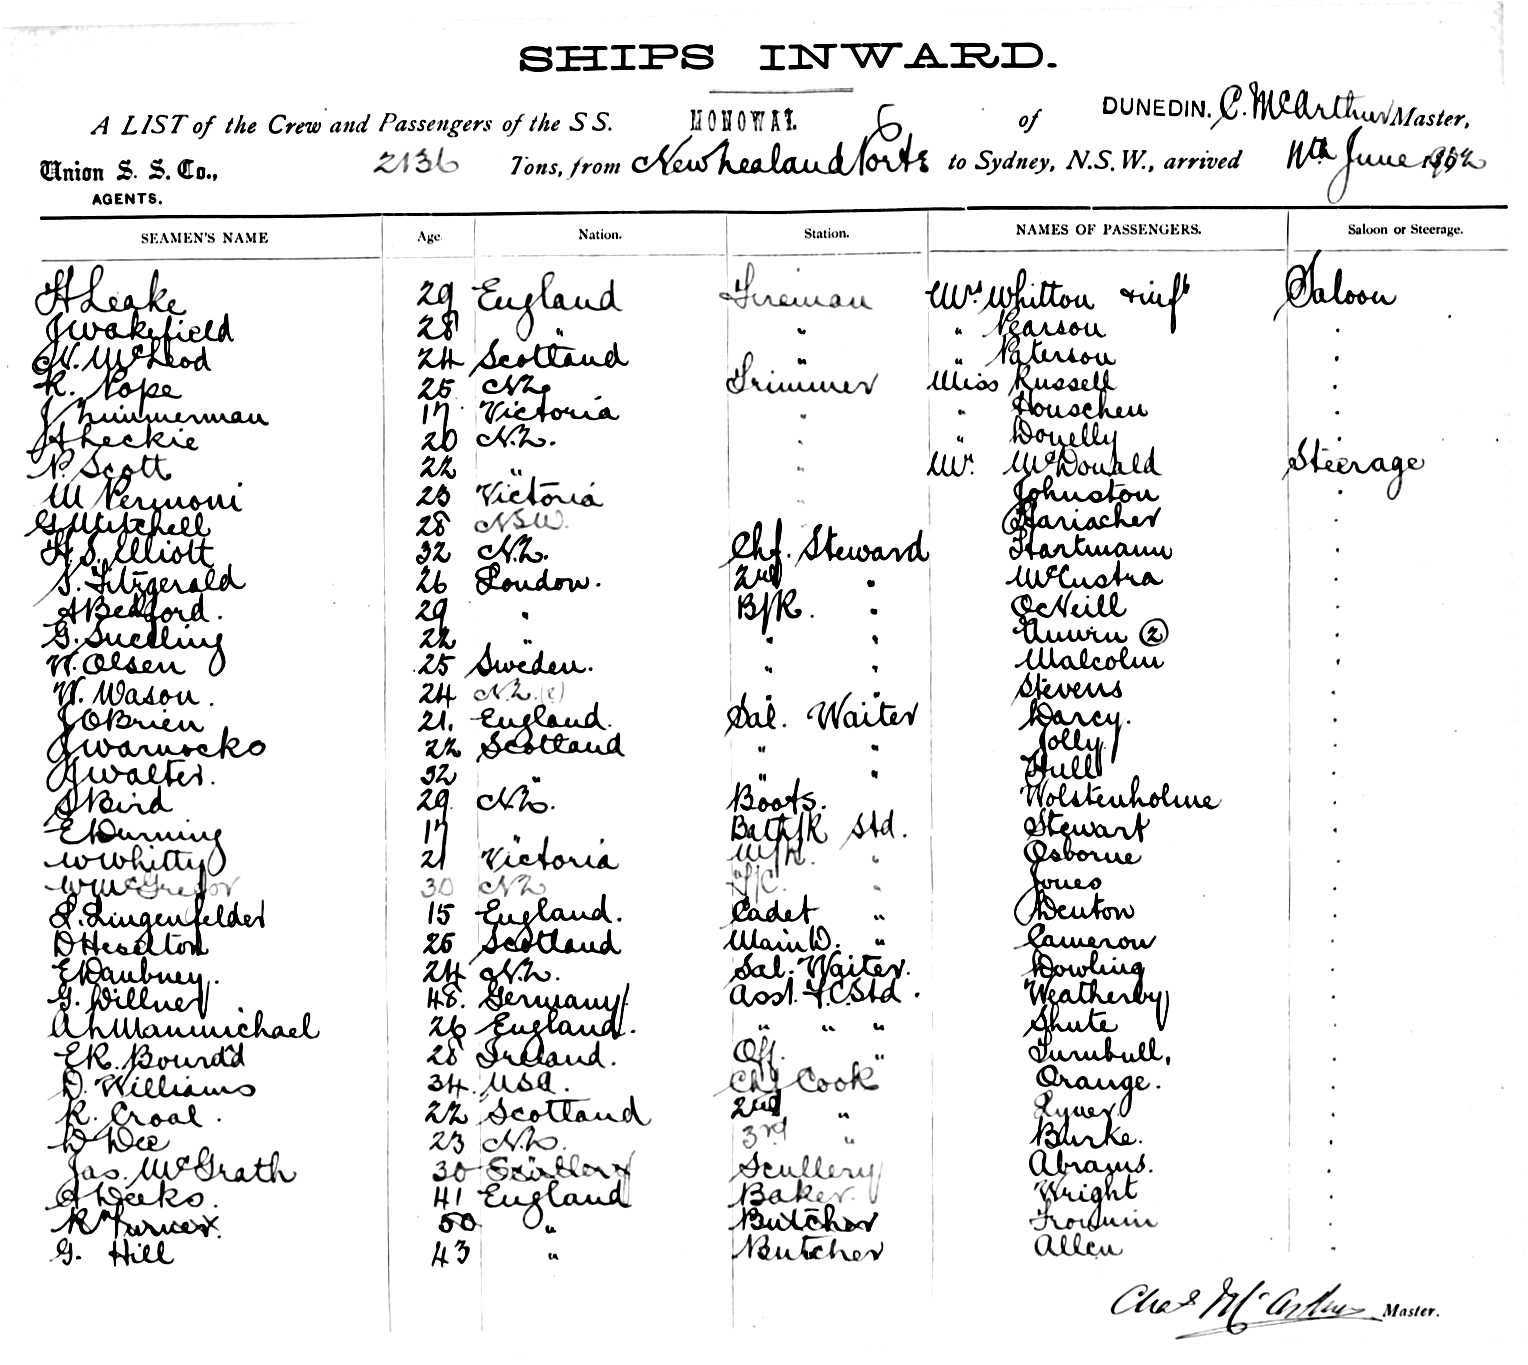 SHIPS INWARD.
A LIST of the Crew and Passengers of the S S. MONOWAI. of DUNEDIN. C. McArthur Master,
Union S. S. Co., 2136 Tons, from New Zealand Ports to Sydney, N.S.W., arrived 11th June
AGENTS.
SEAMEN'S NAME Age. Nation. Station. NAMES OF PASSENGERS. Saloon or Steerage.
H Leake 29 England Fireman Mrs Whitton & inft Saloon
J Wakefield 28 " " " Pearson .
N. McLeod 24 Scotland " " Paterson .
R. Pope 25 N.Z. Trimmer Miss Russell .
J Zimmerman 17 Victoria " " Houschen .
A Leckie 20 N.Z. " " Donelly .
P. Scott 22 " " Mr. McDonald Steerage
M Permoni 23 Victoria " Johnston .
G Mitchell 28 NSW. Hariacher .
H S. Elliott 32 N.Z. Chf. Steward Hartmann .
S. Fitzgerald 26 London. 2nd " McCustra .
A Bedford. 29 " B/R. " O'Neill .
G. Snelling 22 " " " Unwin (2) .
W. Olsen 25 Sweden. " " Malcolm .
W. Wason. 24 N.Z. " " Stevens .
J O'Brien 21. England. Sal. Waiter Darcy. .
J Warnocko 22 Scotland " " Jolly .
J Walter. 32 " " " Hull .
S Bird 29 N.Z. Boots. Wolstenholme .
E Durning 17 " Bath/R Std. Stewart .
W Whitty 21 Victoria M/R. " Osborne .
W McGregor 30 NZ F/C. " Jones .
L. Lingenfelder 15 England. Cadet " Denton .
D Heselton 25 Scotland Main D. " Cameron .
E Daubney. 24 N.Z. Sal. Waiter. Dowling .
G. Willner 48. Germany Asst. F.C. Std. Weatherby .
A L Manmichael 26 England. " " " Shute .
E R. Bourd'd 28 Ireland. Off. " Turnbull, .
D. Williams 34. USA. Chf Cook Orange. .
R. Croal. 22 Scotland 2nd " .
D Dee 23 N.Z. 3rd " Burke. .
Jas. McGrath 30 Scullery Abrams. .
A Weeks. 41 England Baker. Wright .
R Turner. 50 " Butcher .
G. Hill 43 " Butcher Allen .
Chas McArthur Master.